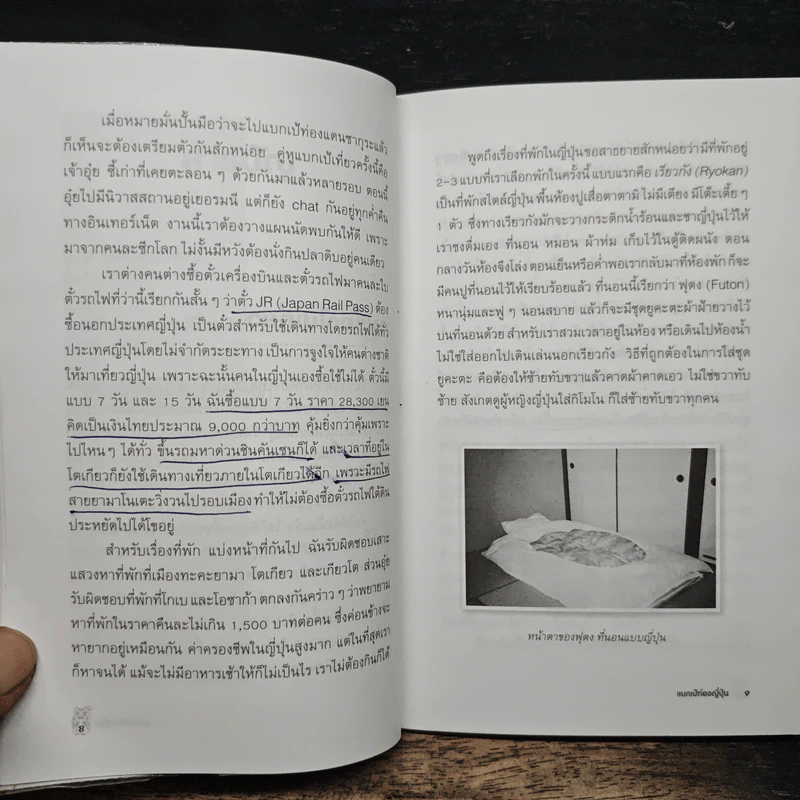 เมื่อหมายมั่นปั้นมือว่าจะไปแบกเป้ท่องแดนซากุระแล้ว
ก็เห็นจะต้องเตรียมตัวกันสักหน่อย คู่หูแบกเป้เที่ยวครั้งนี้คือ
เจ้าอุ๋ย ซี้เก่าที่เคยตะลอน ๆ ด้วยกันมาแล้วหลายรอบ ตอนนี้
อุ๋ยไปมีนิวาสสถานอยู่เยอรมนี แต่ก็ยัง chat กันอยู่ทุกค่ำคืน
ทางอินเทอร์เน็ต งานนี้เราต้องวางแผนนัดพบกันให้ดี เพราะ
มาจากคนละซีกโลก ไม่งั้นมีหวังต้องนั่งกินปลาดิบอยู่คนเดียว
เราต่างคนต่างซื้อตั๋วเครื่องบินและตั๋วรถไฟมาคนละใบ
ตั๋วรถไฟที่ว่านี้เรียกกันสั้น ๆ ว่าตั๋ว JR (Japan Rail Pass) ต้อง
ซื้อนอกประเทศญี่ปุ่น เป็นตั๋วสำหรับใช้เดินทางโดยรถไฟได้ทั่ว
ประเทศญี่ปุ่นโดยไม่จำกัดระยะทาง เป็นการจูงใจให้คนต่างชาติ
ให้มาเที่ยวญี่ปุ่น เพราะฉะนั้นคนในญี่ปุ่นเองซื้อใช้ไม่ได้ ตั๋วนี้มี
แบบ 7 วัน และ 15 วัน ฉันซื้อแบบ 7 วัน ราคา 28,300 เยน
คิดเป็นเงินไทยประมาณ 9,000 กว่าบาท คุ้มยิ่งกว่าคุ้มเพราะ
ไปไหนๆ ได้ทั่ว ขึ้นรถมหาด่วนชินคันเซนก็ได้ และเวลาที่อยู่ใน
โตเกียวก็ยังใช้เดินทางเที่ยวภายในโตเกียวได้อีก เพราะมีรถไฟ
สายยามาโนเตะวิ่งวนไปรอบเมือง ทำให้ไม่ต้องซื้อตั๋วรถไฟใต้ดิน
ประหยัดไปได้โขอยู่
สำหรับเรื่องที่พัก แบ่งหน้าที่กันไป ฉันรับผิดชอบเสาะ
แสวงหาที่พักที่เมืองทะคะยามา โตเกียว และเกียวโต ส่วนอุ๋ย
รับผิดชอบที่พักที่โกเบ และโอซาก้า ตกลงกันคร่าว ๆ ว่าพยายาม
หาที่พักในราคาคืนละไม่เกิน 1,500 บาทต่อคน ซึ่งค่อนข้างจะ
หายากอยู่เหมือนกัน ค่าครองชีพในญี่ปุ่นสูงมาก แต่ในที่สุดเรา
ก็หาจนได้ แม้จะไม่มีอาหารเช้าให้ก็ไม่เป็นไร เราไม่ต้องกินก็ได้
8
พูดถึงเรื่องที่พักในญี่ปุ่นขอสาธยายสักหน่อยว่ามีที่พักอยู่
2-3 แบบที่เราเลือกพักในครั้งนี้ แบบแรกคือ เรียวกัง (Ryokan)
เป็นที่พักสไตล์ญี่ปุ่น พื้นห้องปูเสื่อตาตามิ ไม่มีเตียง มีโต๊ะเตี้ย ๆ
1 ตัว ซึ่งทางเรียวกังมักจะวางกระติกน้ำร้อนและชาญี่ปุ่นไว้ให้
เราชงดื่มเอง ที่นอน หมอน ผ้าห่ม เก็บไว้ในตู้ติดผนัง ตอน
กลางวันห้องจึงโล่ง ตอนเย็นหรือค่ำพอเรากลับมาที่ห้องพัก ก็จะ
มีคนปูที่นอนไว้ให้เรียบร้อยแล้ว ที่นอนนี้เรียกว่า ฟุตง (Futon)
หนานุ่มและฟู ๆ นอนสบาย แล้วก็จะมีชุดยูคะตะผ้าฝ้ายวางไว้
บนที่นอนด้วย สำหรับเราสวมเวลาอยู่ในห้อง หรือเดินไปห้องน้ำ
ไม่ใช่ใส่ออกไปเดินเล่นนอกเรียวกัง วิธีที่ถูกต้องในการใส่ชุด
ยูคะตะ คือต้องให้ซ้ายทับขวาแล้วคาดผ้าคาดเอว ไม่ใช่ขวาทับ
ซ้าย สังเกตดูผู้หญิงญี่ปุ่นใส่กิโมโน ก็ใส่ซ้ายทับขวาทุกคน
หน้าตาของฟุตง ที่นอนแบบญี่ปุ่น
แบกเป้ท่องญี่ปุ่น 9